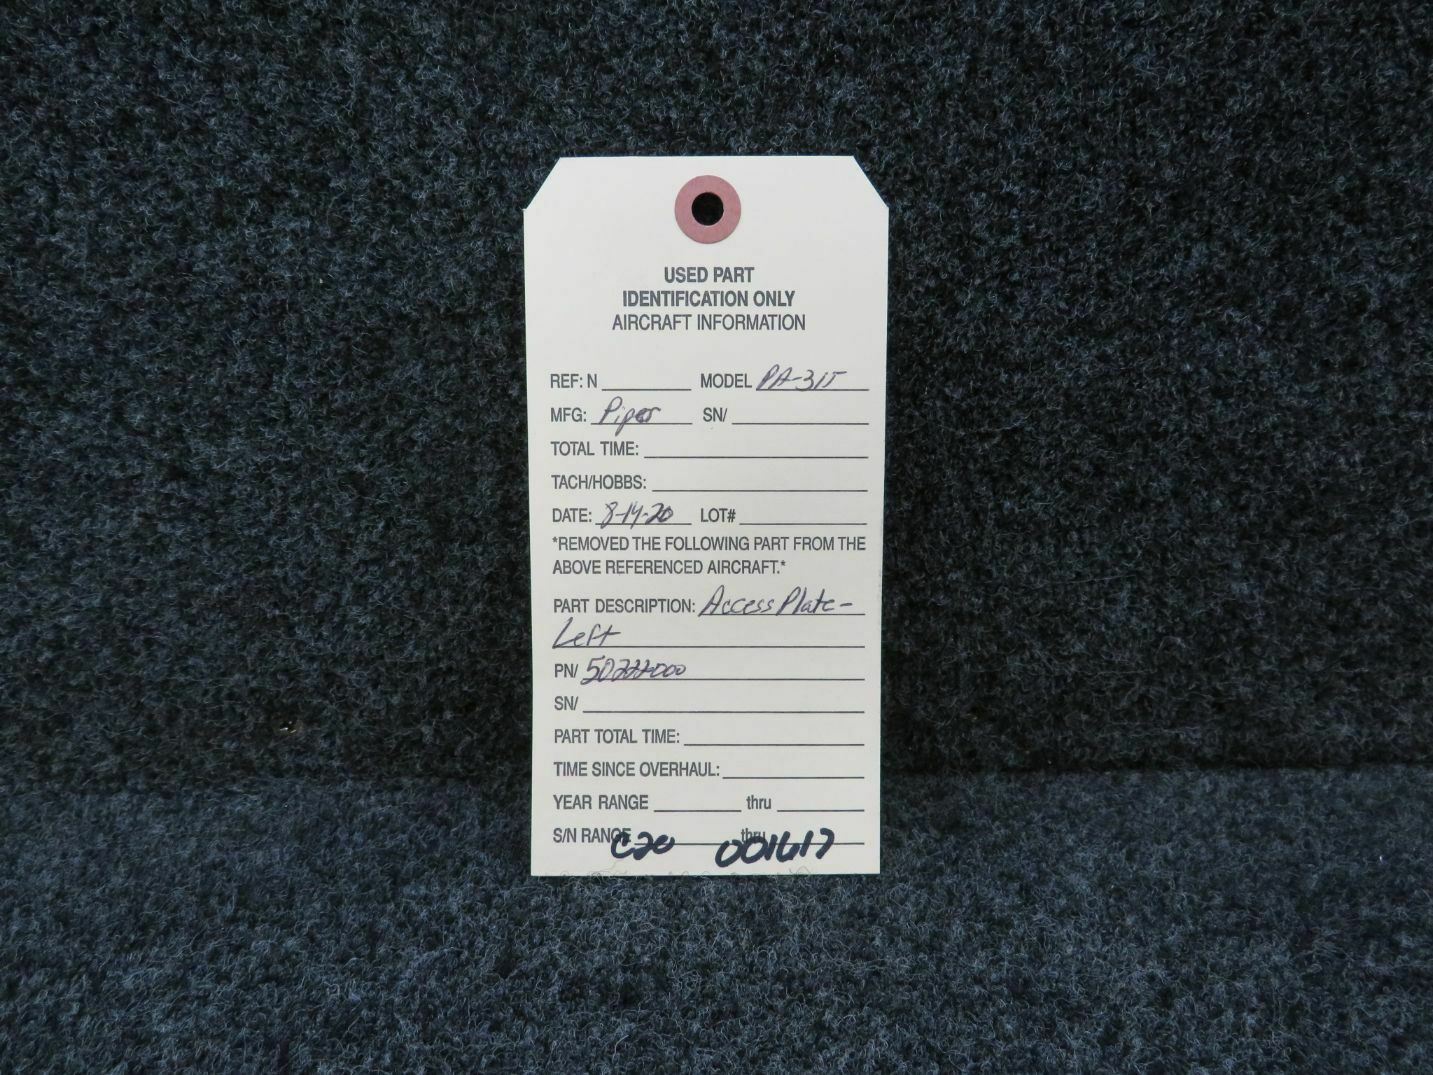 USED PART
IDENTIFICATION ONLY
AIRCRAFT INFORMATION
REF: N MODEL PA-31T
MFG: Piper SN/
TOTAL TIME:
TACH/HOBBS:
DATE: 8-14-20 LOT#
*REMOVED THE FOLLOWING PART FROM THE
ABOVE REFERENCED AIRCRAFT.*
PART DESCRIPTION: Access Plate-
Left
PN/ 50222-000
SN/
PART TOTAL TIME:
TIME SINCE OVERHAUL:
YEAR RANGE thru
S/N RANGE thru
C20 001617